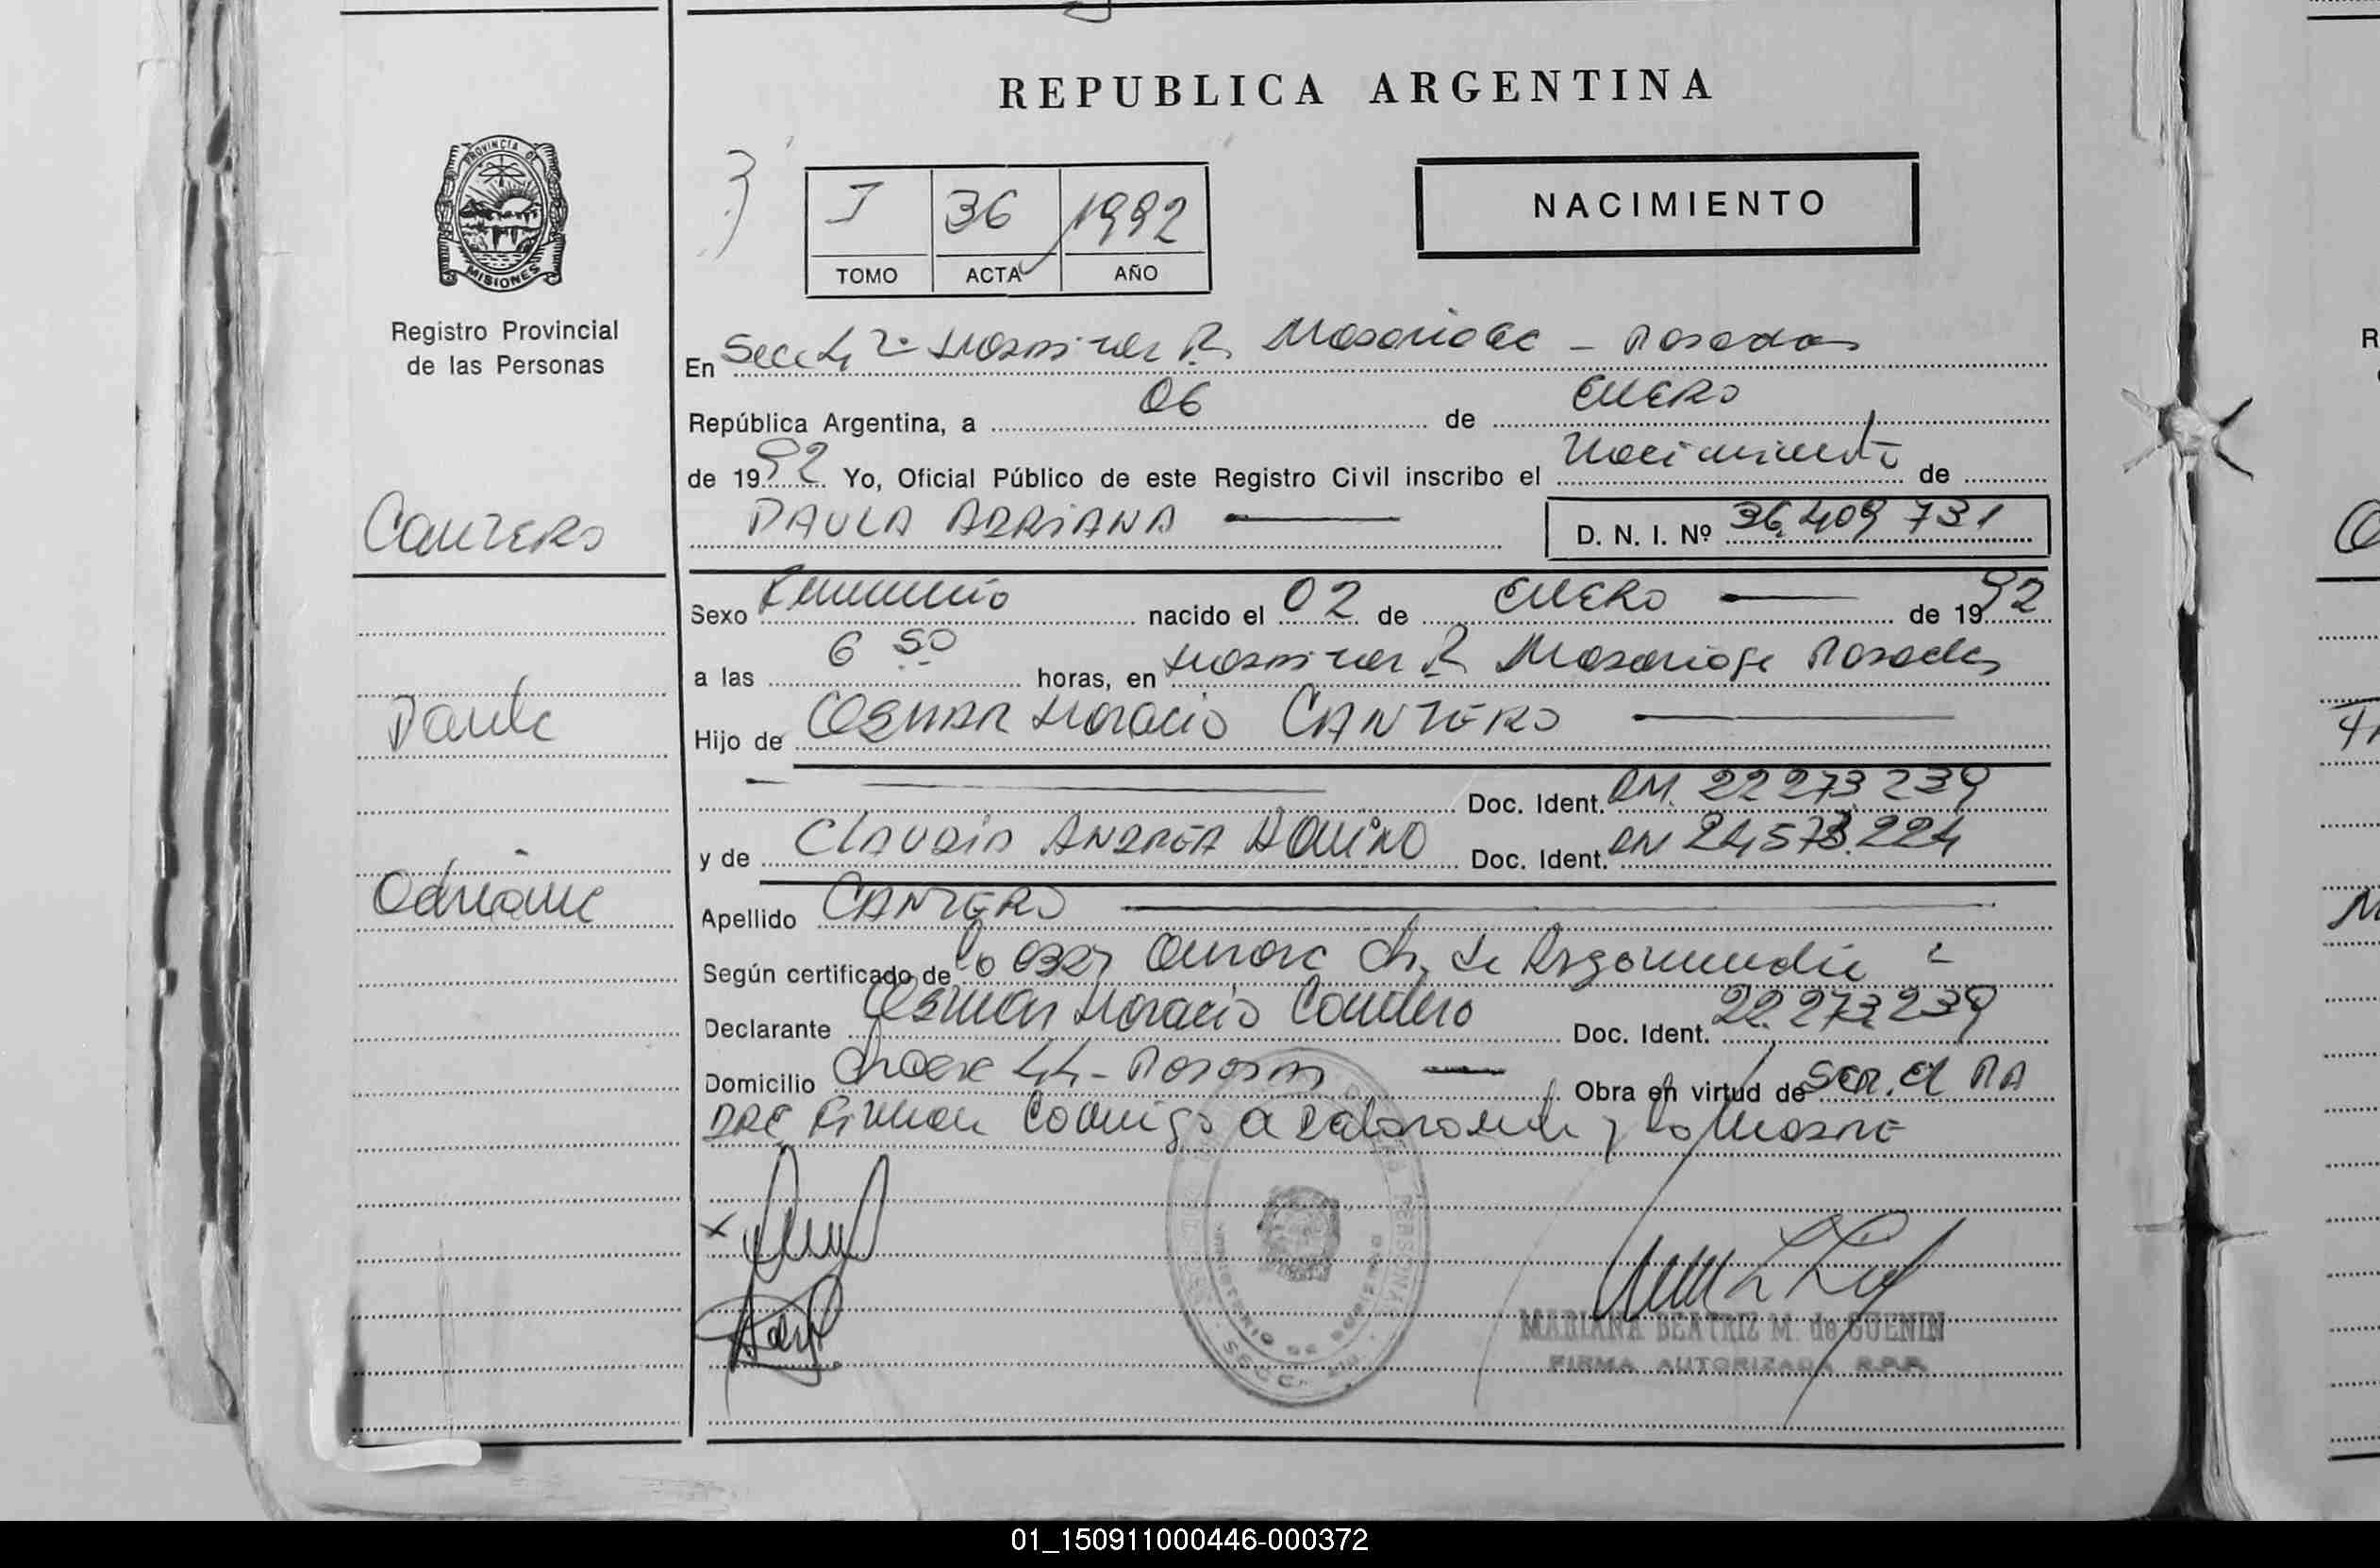 REPUBLICA ARGENTINA
PROVINCIA DE
MISIONES
Registro Provincial
de las Personas
I 36 1992
TOMO ACTA AÑO
NACIMIENTO
En Secc 4 2ª Hospital R. Madariaga - Posadas
República Argentina, a 06 de ENERO
de 1992 Yo, Oficial Público de este Registro Civil inscribo el Nacimiento de
PAULA ADRIANA
D. N. I. Nº 36.409.731
CANTERO
Sexo Femenino nacido el 02 de ENERO de 1992
a las 6 50 horas, en Hospital R Madariaga Posadas
Paula
Hijo de OSMAR Horacio CANTERO
Doc. Ident. DNI. 22.273.239
y de CLAUDIA ANDREA AQUINO Doc. Ident. DNI 24.573.224
Adriana
Apellido CANTERO
Según certificado de
Declarante Osmar Horacio Cantero Doc. Ident. 22.273.239
Domicilio Chacra 44 - Posadas Obra en virtud de SER. El PA
DRE Firman Conmigo el Declarante y la Madre
MARIANA BEATRIZ M. de GUENIN
FIRMA AUTORIZADA R.P.P.
01_150911000446-000372